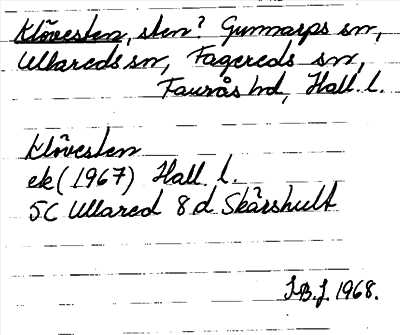 Klövesten, sten? Gunnarps sn,
Ullareds sn, Fagereds sn,
Faurås hd, Hall. l.
Klövesten
ek (1967) Hall. l.
5C Ullared 8 d Skärshult
I.B.J. 1968.